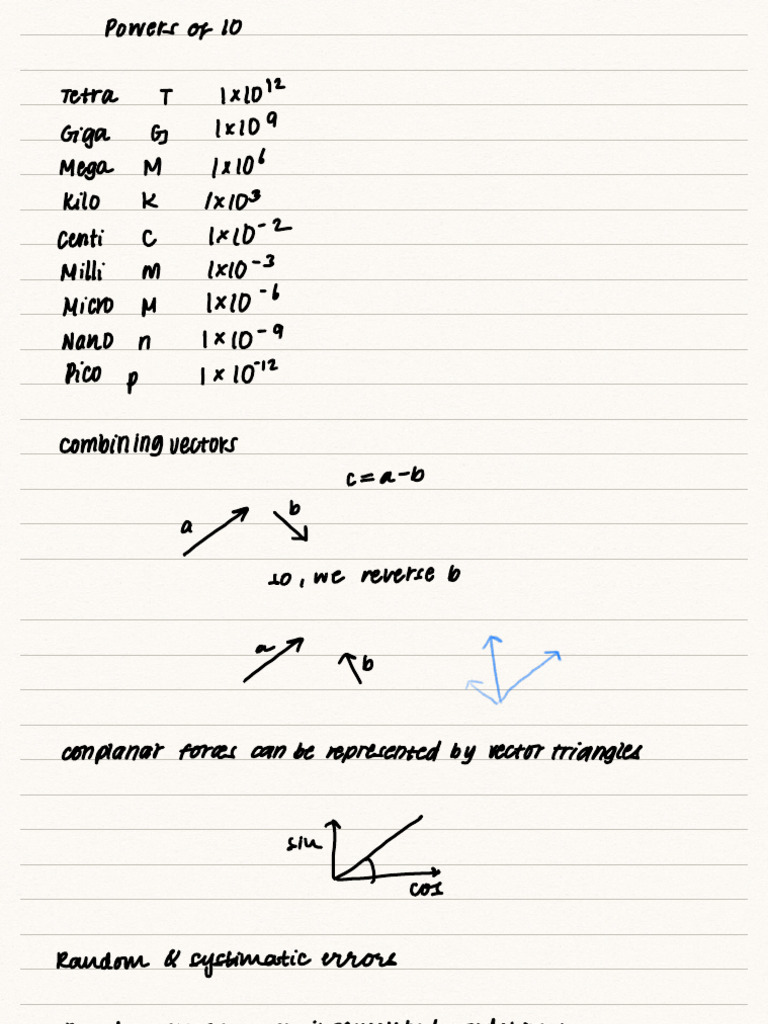 Powers of 10
Tetra T 1×10¹²
Giga G 1×10⁹
Mega M 1×10⁶
Kilo K 1×10³
Centi C 1×10⁻²
Milli m 1×10⁻³
Micro M 1×10⁻⁶
Nano n 1×10⁻⁹
Pico p 1×10⁻¹²
combining vectors
c=a-b
a b
so, we reverse b
a b
conplanar forces can be represented by vector triangles
sin
cos
Random & systimatic errors